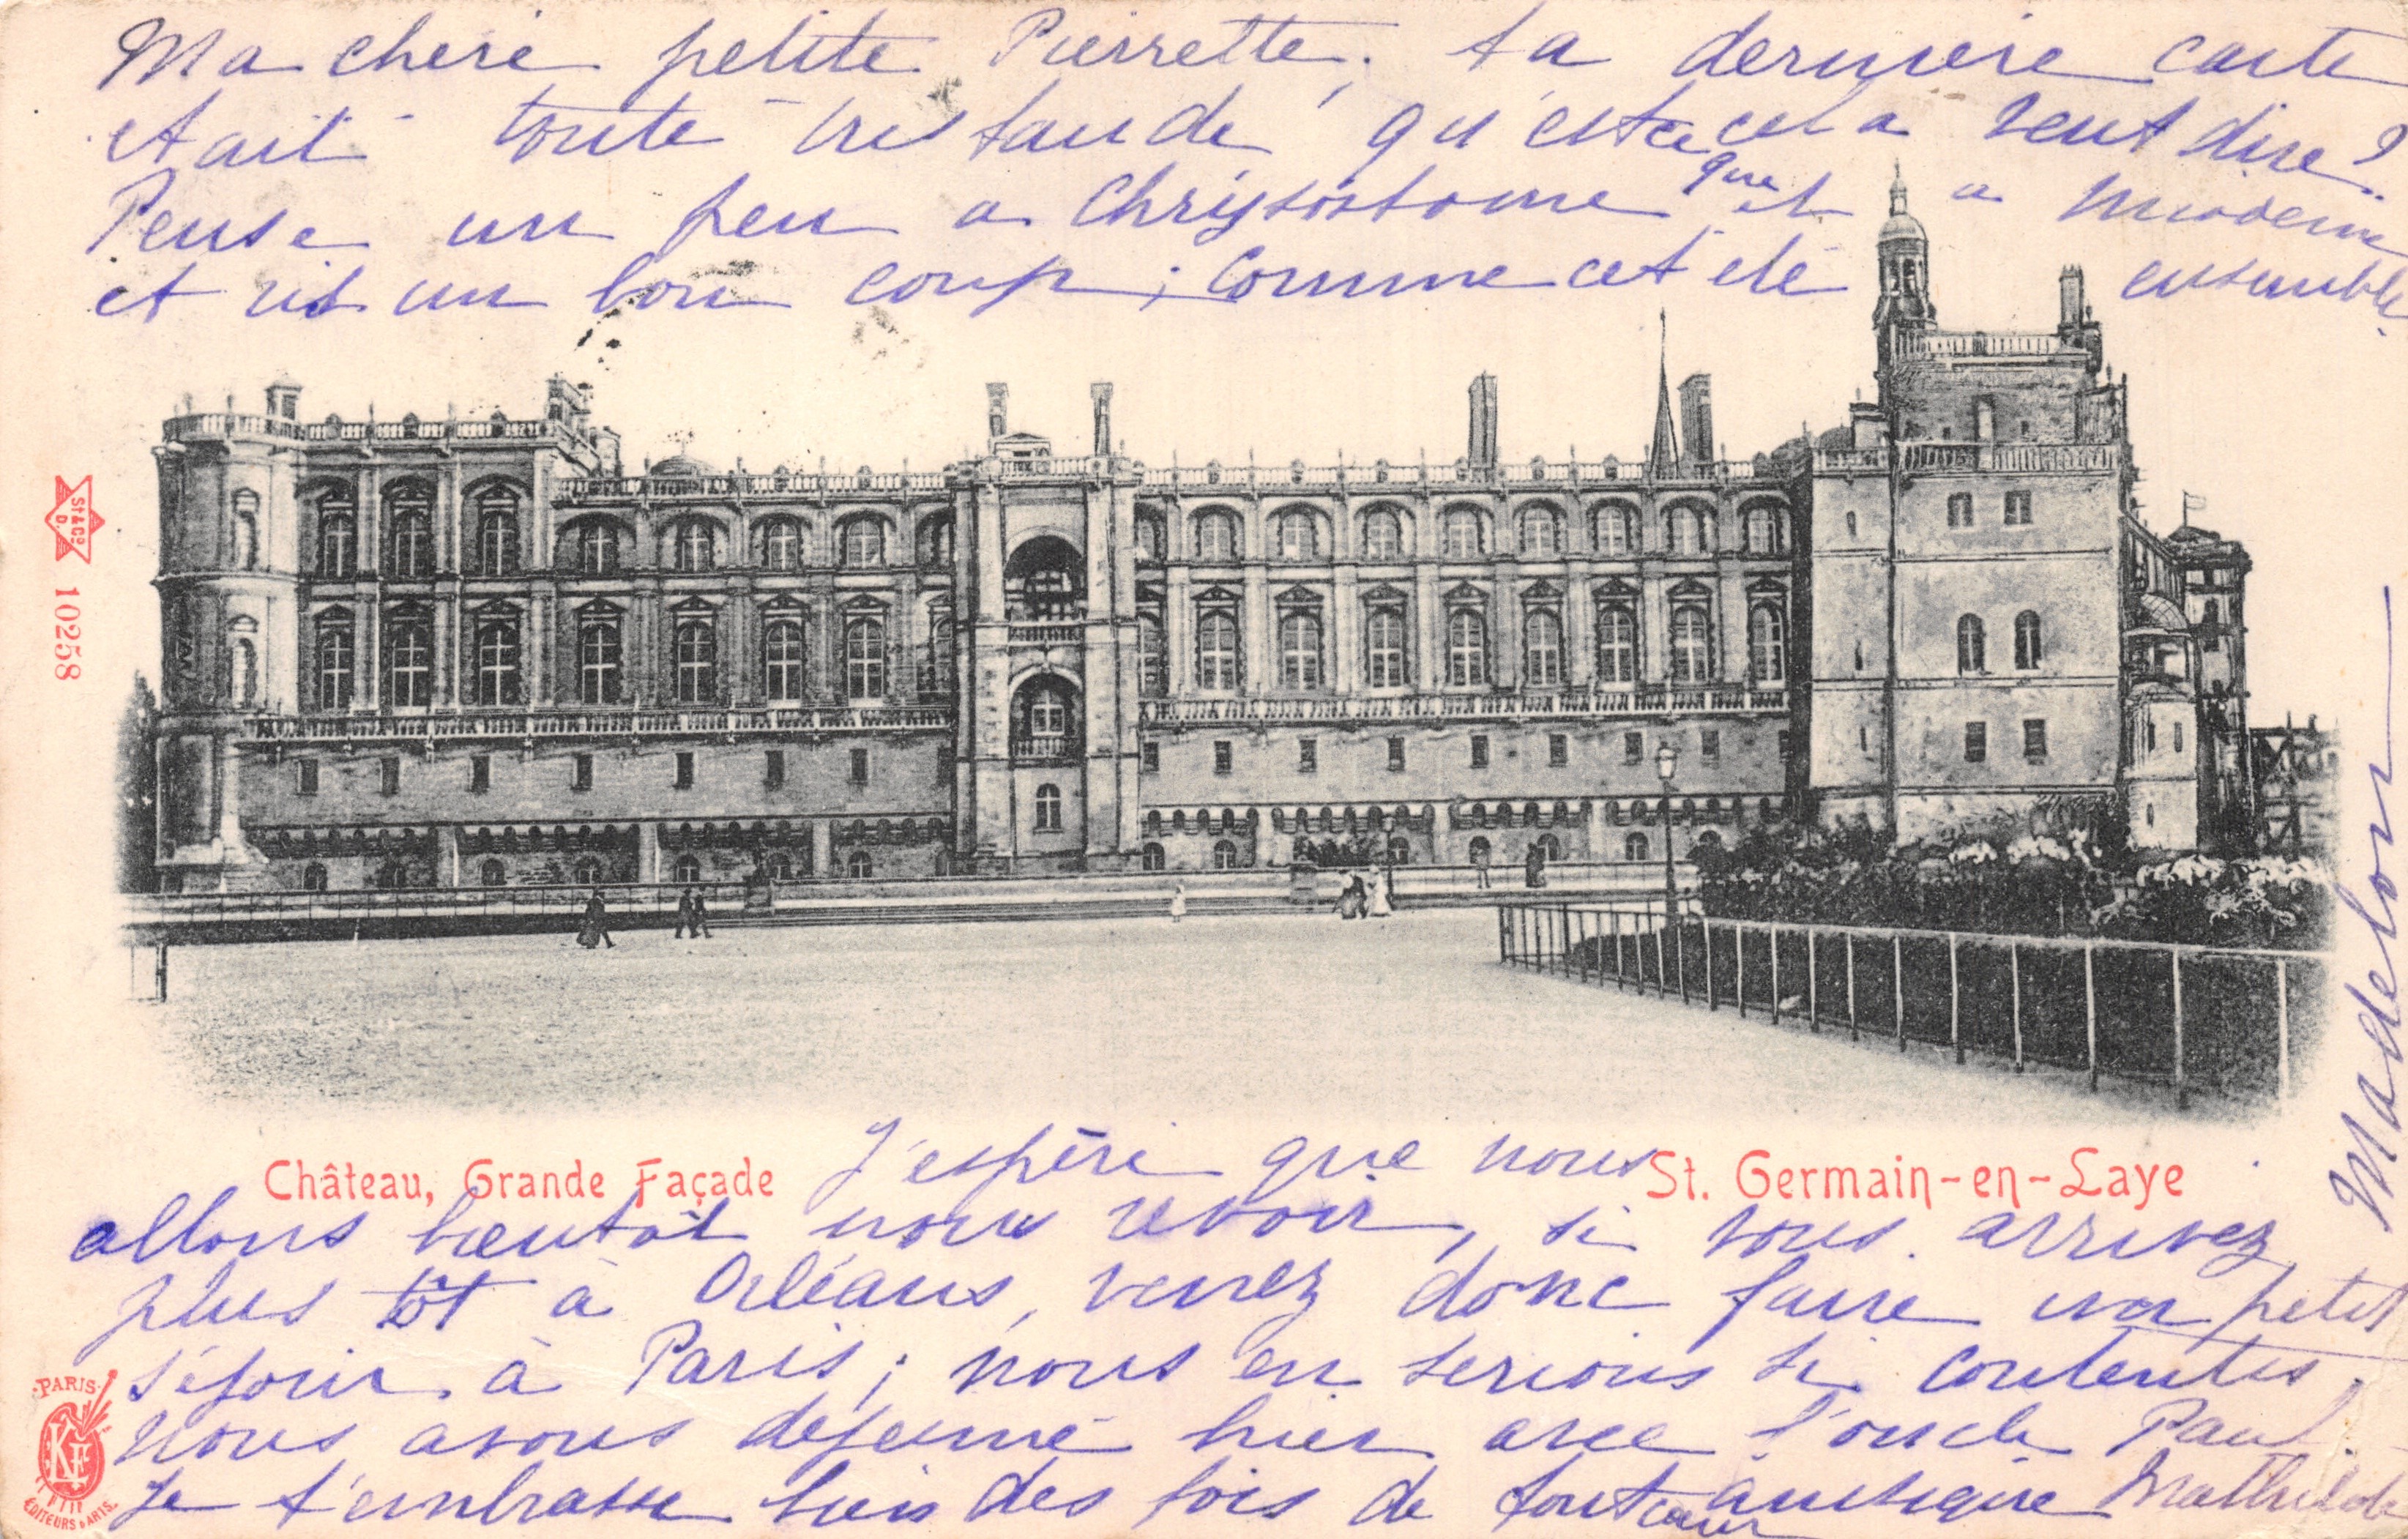 Ma chere petite Pierrette, ta derniere carte
etait toute tres taude qu'est ce cela veut dire?
que
Pense un peu a Chrysostome et a
et ris un bon coup, comme cet ete ensemble.
ST&CO
D.
10258
Château, Grande Façade
St. Germain-en-Laye
J'espère que nous
allons bientôt nous revoir, si vous arrivez
plus tôt à Orléans, venez donc faire un petit
séjour à Paris; nous en serions si contentes.
nous avons dejeuné hier avec l'oncle Paul.
Je t'embrasse bien des fois de tout coeur Mathilde
Madelon
PARIS
KF
ÉDITEURS D'ARTS.